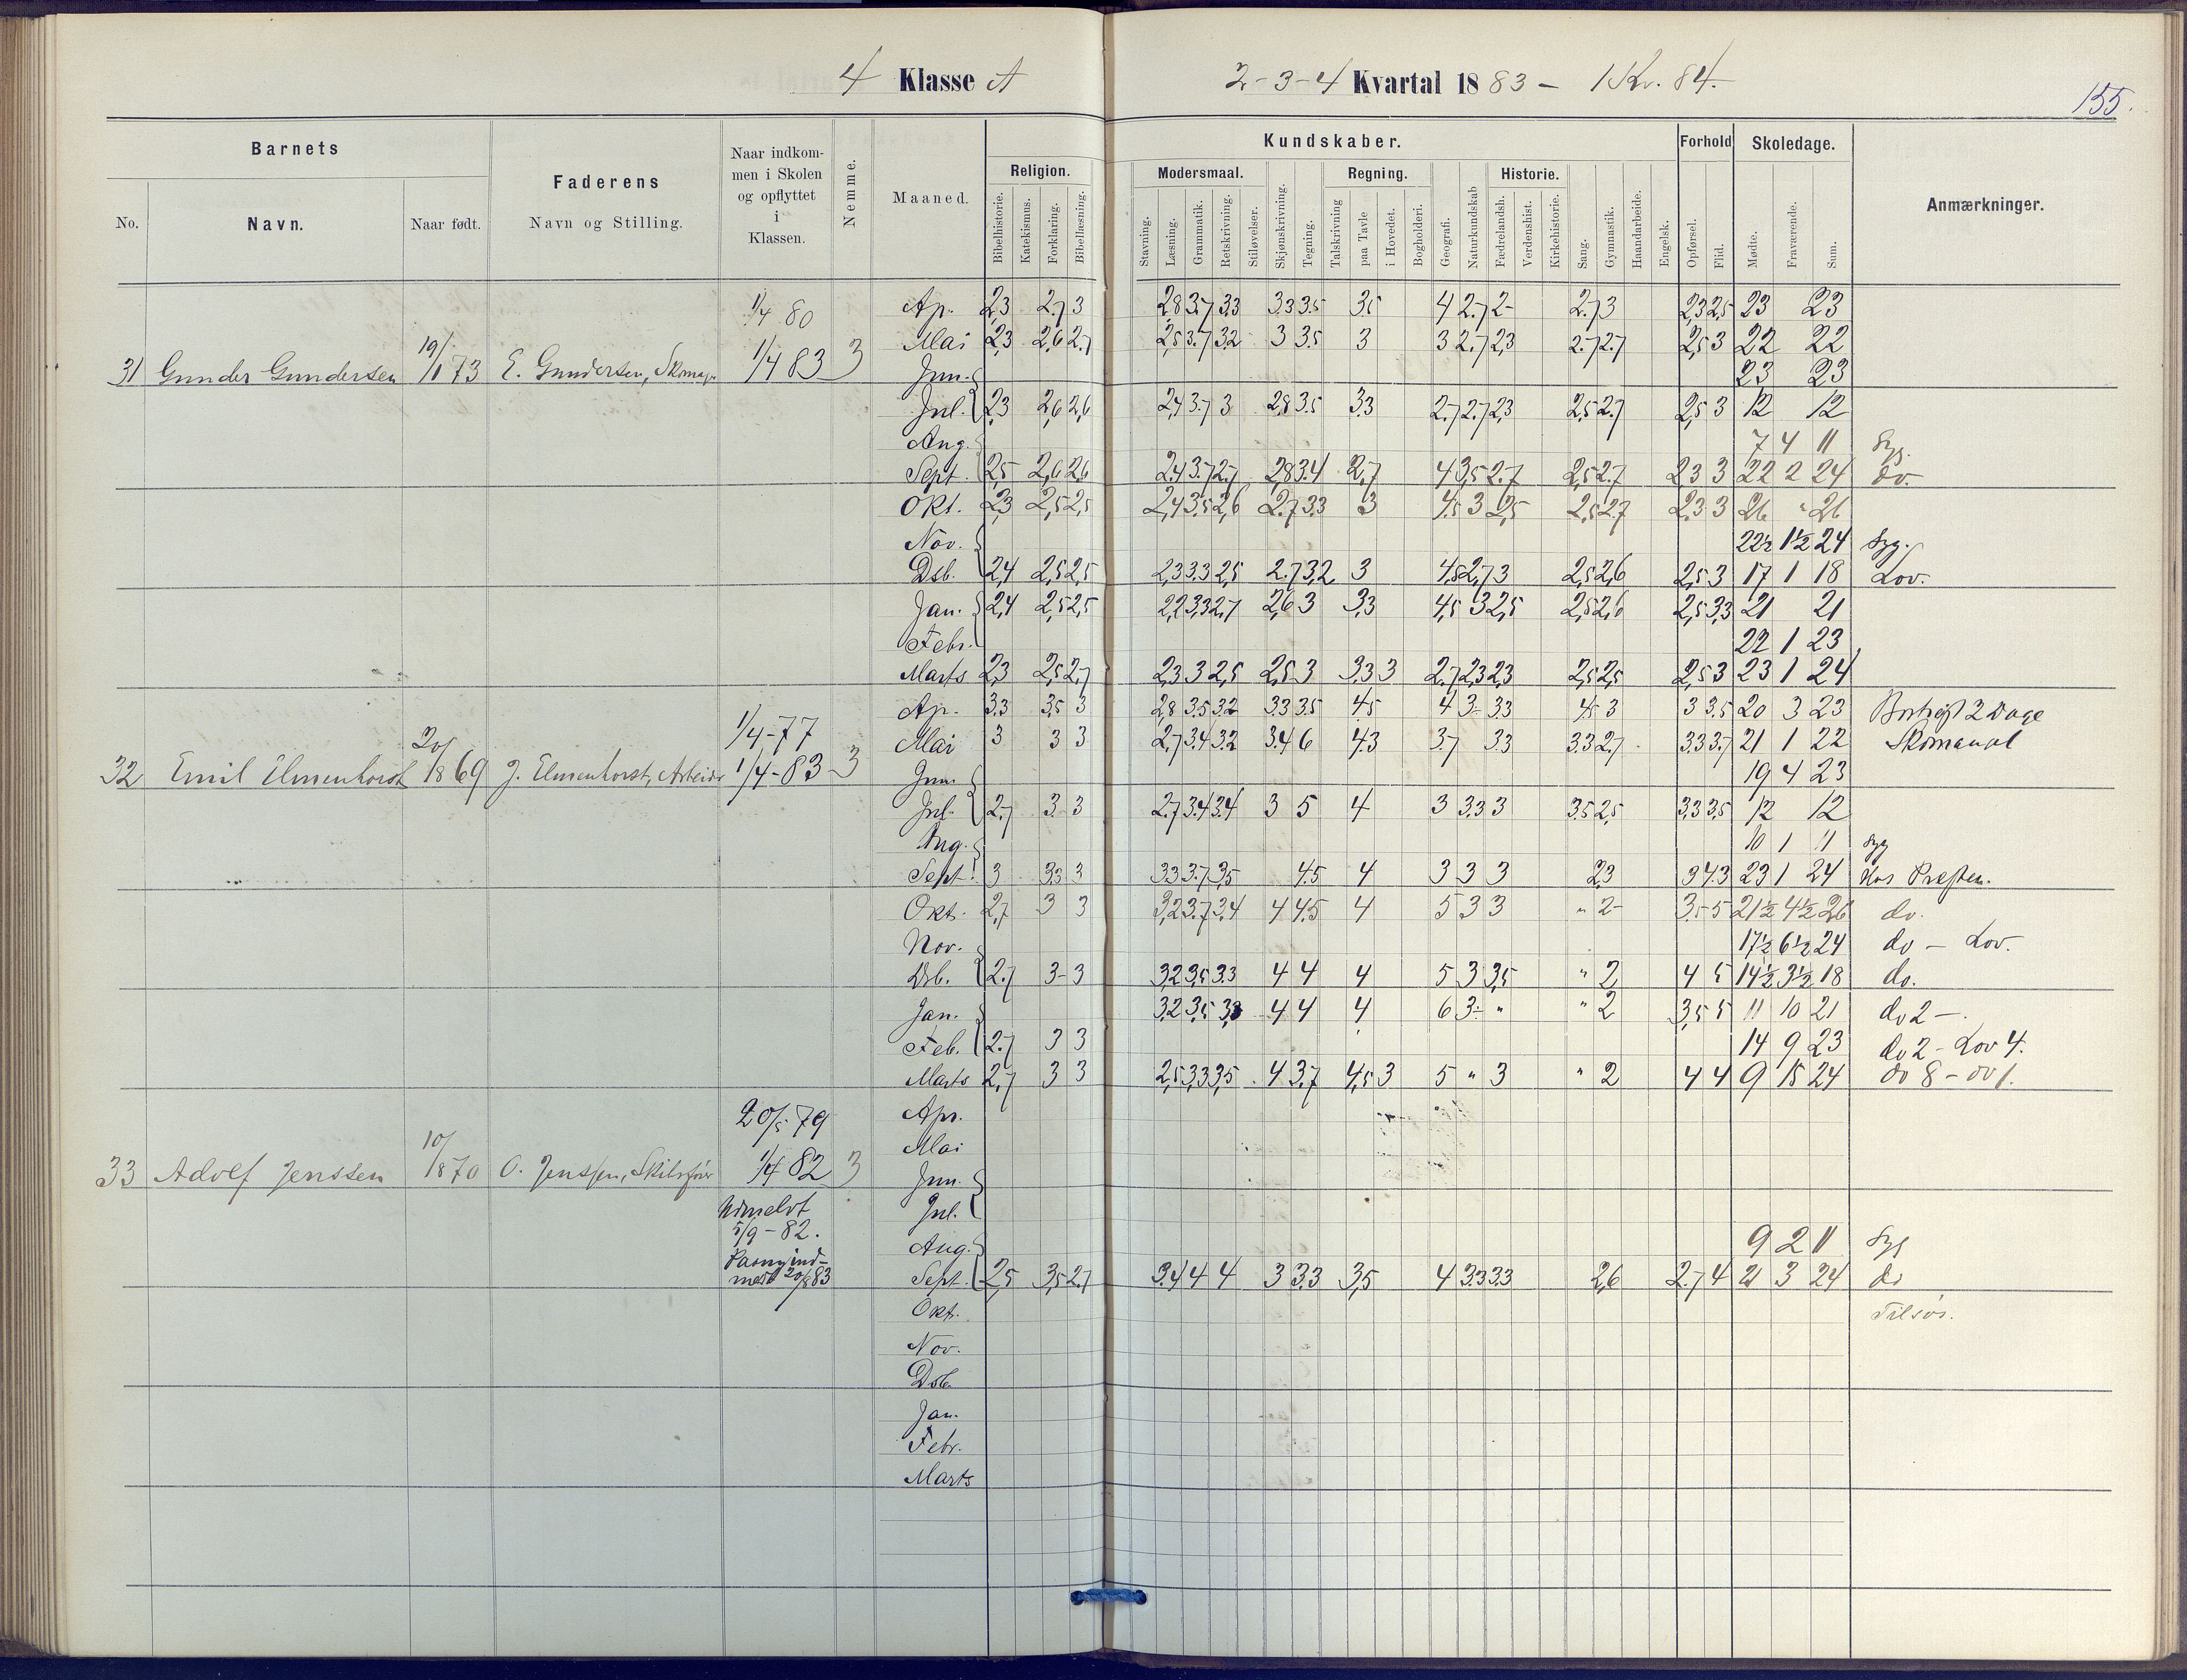 4 Klasse A
2-3-4 Kvartal 1883 - 1 Kv. 84.
155.
Barnets
Faderens
Naar indkom-
men i Skolen
og opflyttet
i
Klassen.
Nemme.
Maaned.
Religion.
Kundskaber.
Forhold
Skoledage.
Anmærkninger.
Modersmaal.
Regning.
Historie.
No.
Navn.
Naar født.
Navn og Stilling.
Bibelhistorie.
Katekismus.
Forklaring.
Bibellæsning.
Stavning.
Læsning.
Grammatik.
Retskrivning.
Stiløvelser.
Skjønskrivning.
Tegning.
Talskrivning
paa Tavle
i Hovedet.
Bogholderi.
Geografi.
Naturkundskab
Fædrelandsh.
Verdenshist.
Kirkehistorie.
Sang.
Gymnastik.
Haandarbeide.
Engelsk.
Opførsel.
Flid.
Mødte.
Fraværende.
Sum.
1/4 80
Ap. 2,3 2.7 3 2,8 3.7 3,3 3.3 3.5 3.5 4 2.7 2- 2.7 3 2,3 2,5 23 23
Mai 2,3 2,6 2.7 2,5 3.7 3.2 3 3.5 3 3 2.7 2,3 2.7 2.7 2,5 3 22 22
31 Gunder Gundersen 19/1 73 E. Gundersen, Skomag. 1/4 83 3 Jun. 23 23
Jul. 2,3 2,6 2,6 2,4 3.7 3 2,8 3.5 3.3 2.7 2.7 2,3 2,5 2.7 2,5 3 12 12
Aug. 7 4 11 Syg.
Sept. 2,5 2,6 2,6 2.4 3.7 2.7 2,8 3.4 2,7 4 3,5 2.7 2,5 2.7 2.3 3 22 2 24 do.
Okt. 2,3 2,5 2,5 2,4 3.5 2,6 2.7 3.3 3 4.5 3 2,5 2,5 2.7 2,3 3 26 " 26
Nov. 22½ 1½ 24 Syg.
Dsb. 2,4 2,5 2,5 2,3 3.3 2,5 2.7 3,2 3 4,5 2,7 3 2,5 2,6 2,5 3 17 1 18 Lov.
Jan. 2,4 2,5 2,5 2,2 3,3 2,7 2,6 3 3,3 4,5 3 2,5 2,5 2,6 2,5 3,3 21 21
Febr. 22 1 23
Marts 2,3 2,5 2,7 2,3 3 2,5 2,5 3 3,3 3 2.7 2,3 2,3 2,5 2,5 2,5 3 23 1 24
Ap. 3.3 3.5 3 2,8 3.5 3.2 3.3 3.5 4.5 4 3- 3.3 4.5 3 3 3.5 20 3 23 Bortvist 2 Dage
1/4-77
Mai 3 3 3 2,7 3.4 3.2 3.4 6 4.3 3.7 3.3 3.3 2.7 3.3 3.7 21 1 22
32 Emil Elmenhorst 20/1869 J. Elmenhorst, Arbeider 1/4-83 3 Jun. 19 4 23
Jul. 2,7 3. 3 2.7 3.4 3.4 3 5 4 3 3.3 3 3.5 2,5 3,3 3,5 12 12
Aug. 10 1 11 Syg
Sept. 3 3,3 3 3.3 3.7 3,5 4.5 4 3 3 3 2,3 3 4.3 23 1 24 Hos Præsten.
Okt. 2,7 3 3 3,2 3.7 3,4 4 4.5 4 5 3 3 " 2- 3.5 5 21½ 4½ 26 do.
Nov. 17½ 6½ 24 do - Lov.
Dsb. 2.7 3- 3 3,2 3,5 3.3 4 4 4 5 3 3,5 " 2 4 5 14½ 3½ 18 do.
Jan. 3,2 3,5 3,3 4 4 4 6 3- " " 2 3,5 5 11 10 21 do 2 -.
Feb. 2.7 3 3 14 9 23 do 2 - Lov 4.
Marts 2,7 3 3 2,5 3,3 3,5 4 3.7 4,5 3 5 " 3 " 2 4 4 9 15 24 do 8 - do 1.
20/5 79 Apr.
Mai
33 Adolf Jenssen 10/1870 O. Jenssen, 1/4 82 3 Jun.
Udmeldt
5/9-82.
Jul.
Aug. 9 2 11 Syg
Paany ind-
meldt 20/8 83
Sept. 2,5 3,5 2.7 3.4 4 4 3 3.3 3,5 4 3.3 3.3 2,6 2.7 4 21 3 24 do
Okt. Tilsøs.
Nov.
Dsb.
Jan.
Febr.
Marts